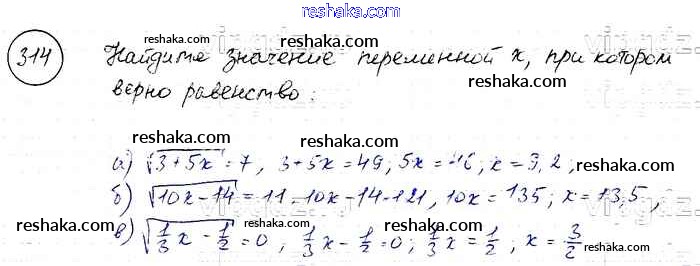 reshaka.com
314 Найдите значение переменной x, при котором
верно равенство:
reshaka.com
reshaka.com
reshaka.com
а) √3+5x = 7, 3+5x = 49; 5x = 46; x = 9,2;
б) √10x-14 = 11. 10x-14=121, 10x = 135; x = 13,5,
reshaka.com
reshaka.com
reshaka.com
в) √1/3x - 1/2 = 0, 1/3x - 1/2 = 0; 1/3x = 1/2; x = 3/2
reshaka.com
reshaka.com
reshaka.com